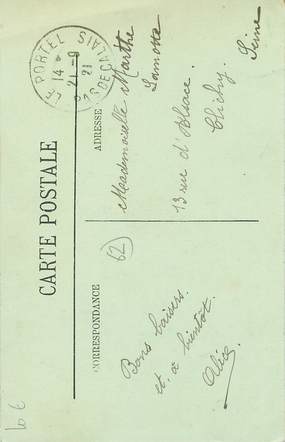 CARTE POSTALE
CORRESPONDANCE
Bons baisers.
et à bientôt.
62
ADRESSE
LE PORTEL
14 *
21 - 9
21
PAS DE CALAIS
Mademoiselle Marthe
13 rue d'Alsace.
Clichy.
Seine